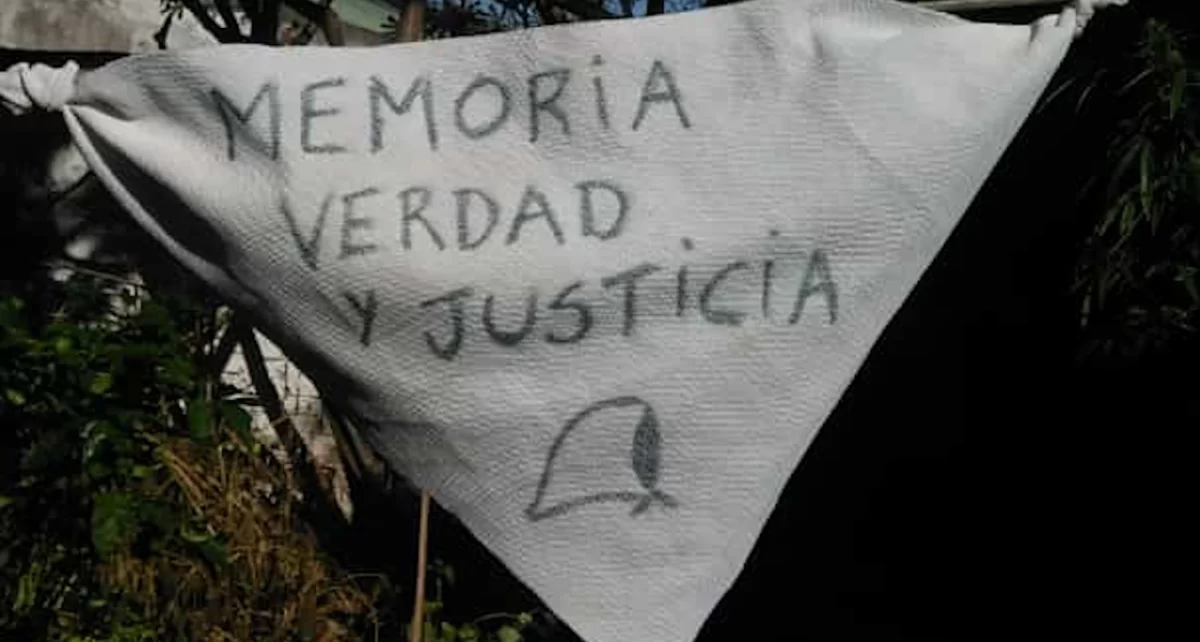 MEMORiA
VERDAD
Y JUSTiCiA